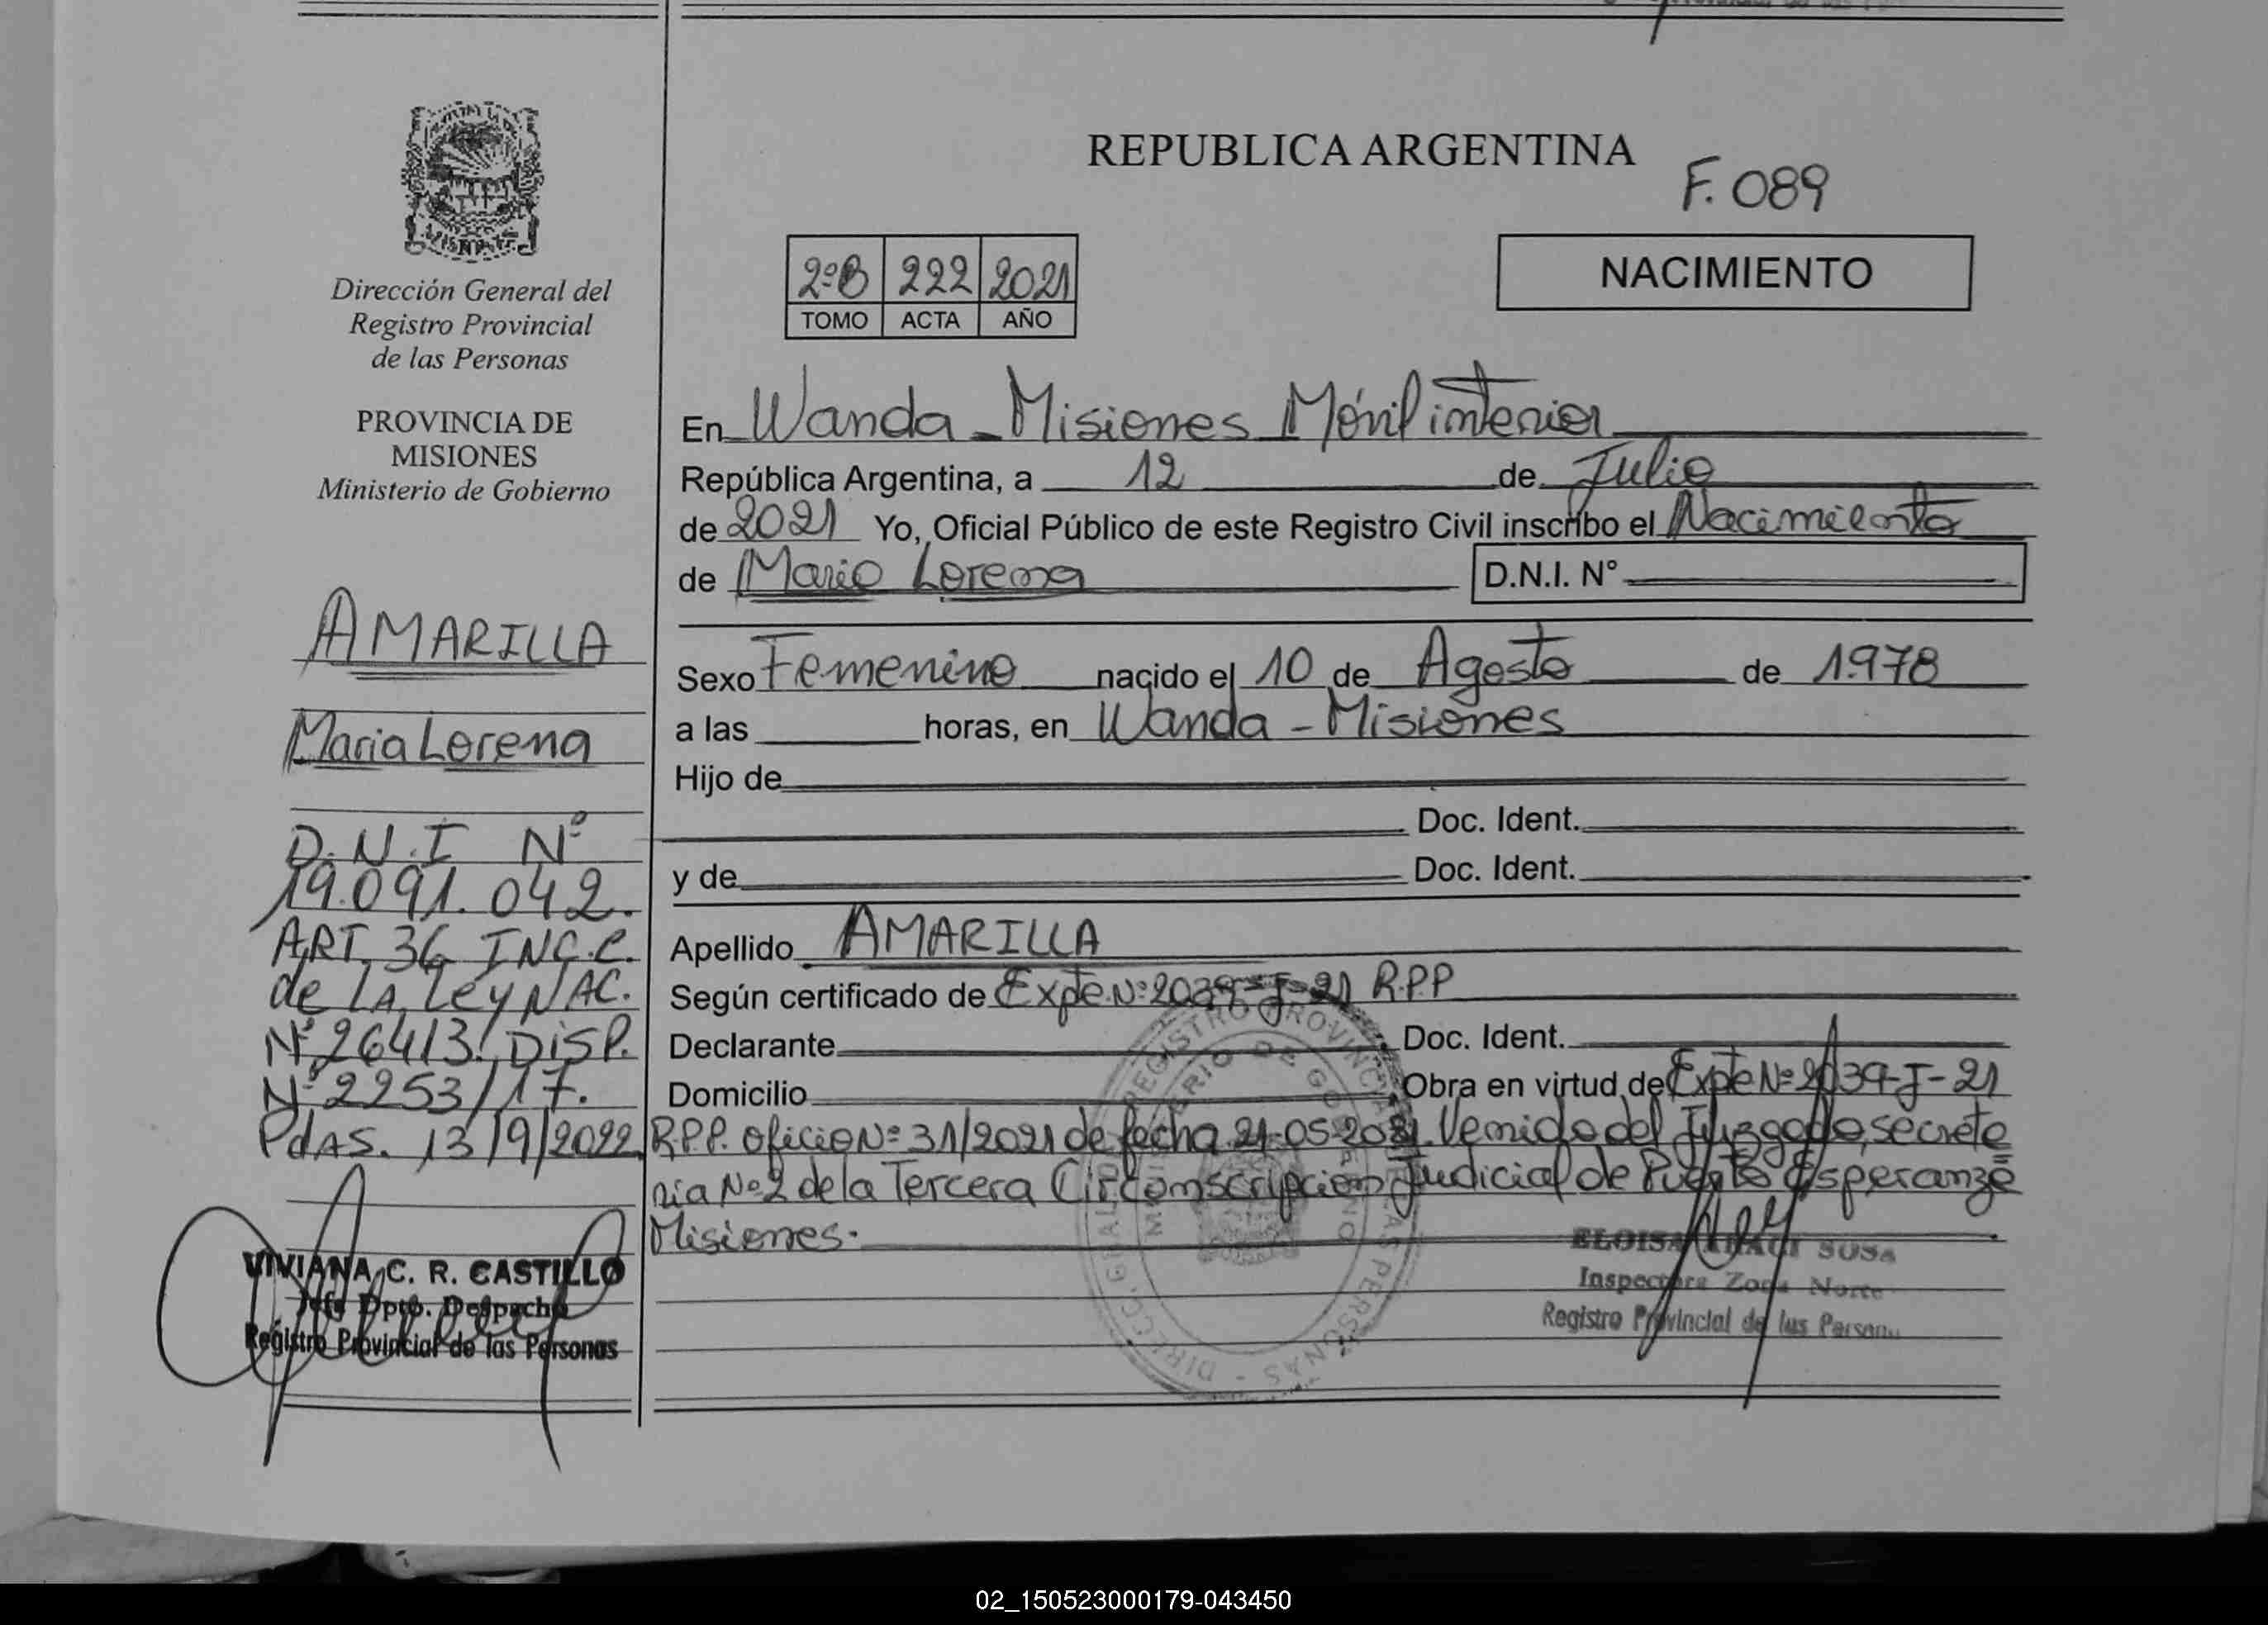 REPUBLICA ARGENTINA
F. 089
Dirección General del
Registro Provincial
de las Personas
PROVINCIA DE
MISIONES
Ministerio de Gobierno
2ºB 222 2021
TOMO ACTA AÑO
NACIMIENTO
En Wanda - Misiones Móvil interior
República Argentina, a 12 de Julio
de 2021 Yo, Oficial Público de este Registro Civil inscribo el Nacimiento
de Maria Lorena D.N.I. N°
Sexo Femenino nacido el 10 de Agosto de 1.978
a las horas, en Wanda - Misiones
Hijo de
Doc. Ident.
y de Doc. Ident.
Apellido AMARILLA
Según certificado de Expte. Nº 2039-J-21 R.P.P
Declarante Doc. Ident.
Domicilio Obra en virtud de Expte Nº 2039-J-21
R.P.P. oficio Nº 31/2021 de fecha 21-05-2021. Venido del Juzgado, secreta
ria Nº 2 de la Tercera Circumscripcion Judicial de Puerto Esperanza
Misiones.
AMARILLA
Maria Lorena
D.N.I Nº
19.091.042.
ART. 36 INC. C.
de LA LeyNAC.
Nº 26413! DiSP.
Nº 2253/17.
PdAS. 13/9/2022
VIVIANA C. R. CASTILLO
Jefa Dpto. Despacho
Registro Provincial de las Personas
ELOISA SUSA
Inspectora Zona Norte
Registro Provincial de las Person
DIRECC. GRAL. DE REGISTRO PROVINCIAL DE LAS PERSONAS
MINISTERIO DE GOBIERNO
02_150523000179-043450